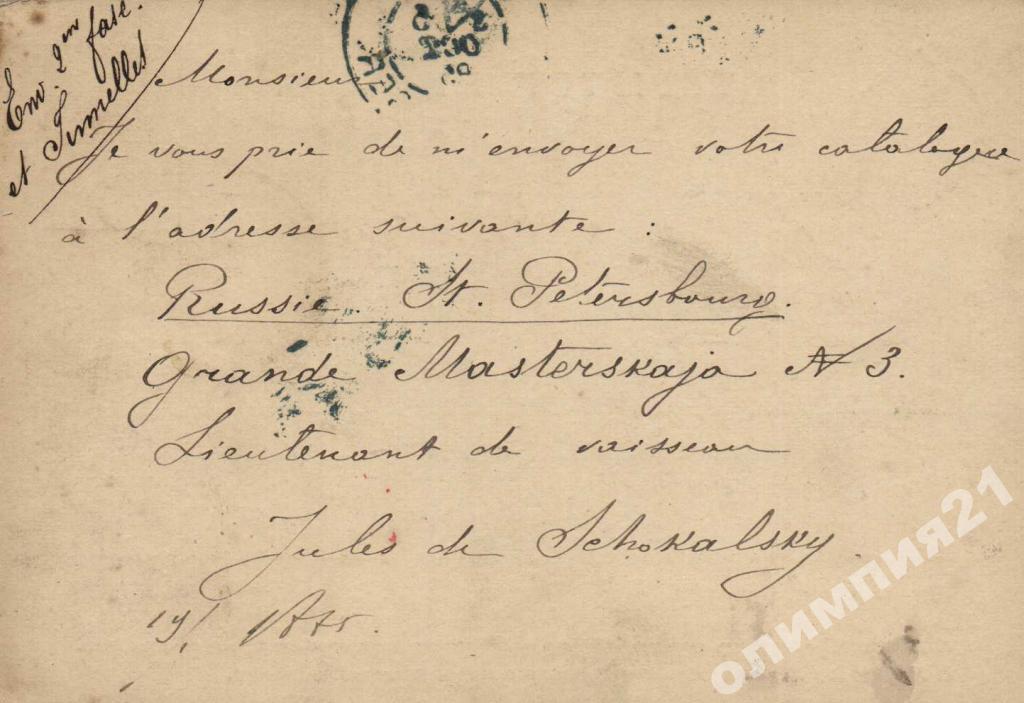 Env. 2me fasc.
et Jumelles
Monsieur
Je vous prie de m'envoyer votre catalogue
à l'adresse suivante :
Russie. St. Pétersbourg.
Grande Masterskaja N 3.
Lieutenant de vaisseau
Jules de Schokalsky.
19/
OCT
олимпия21